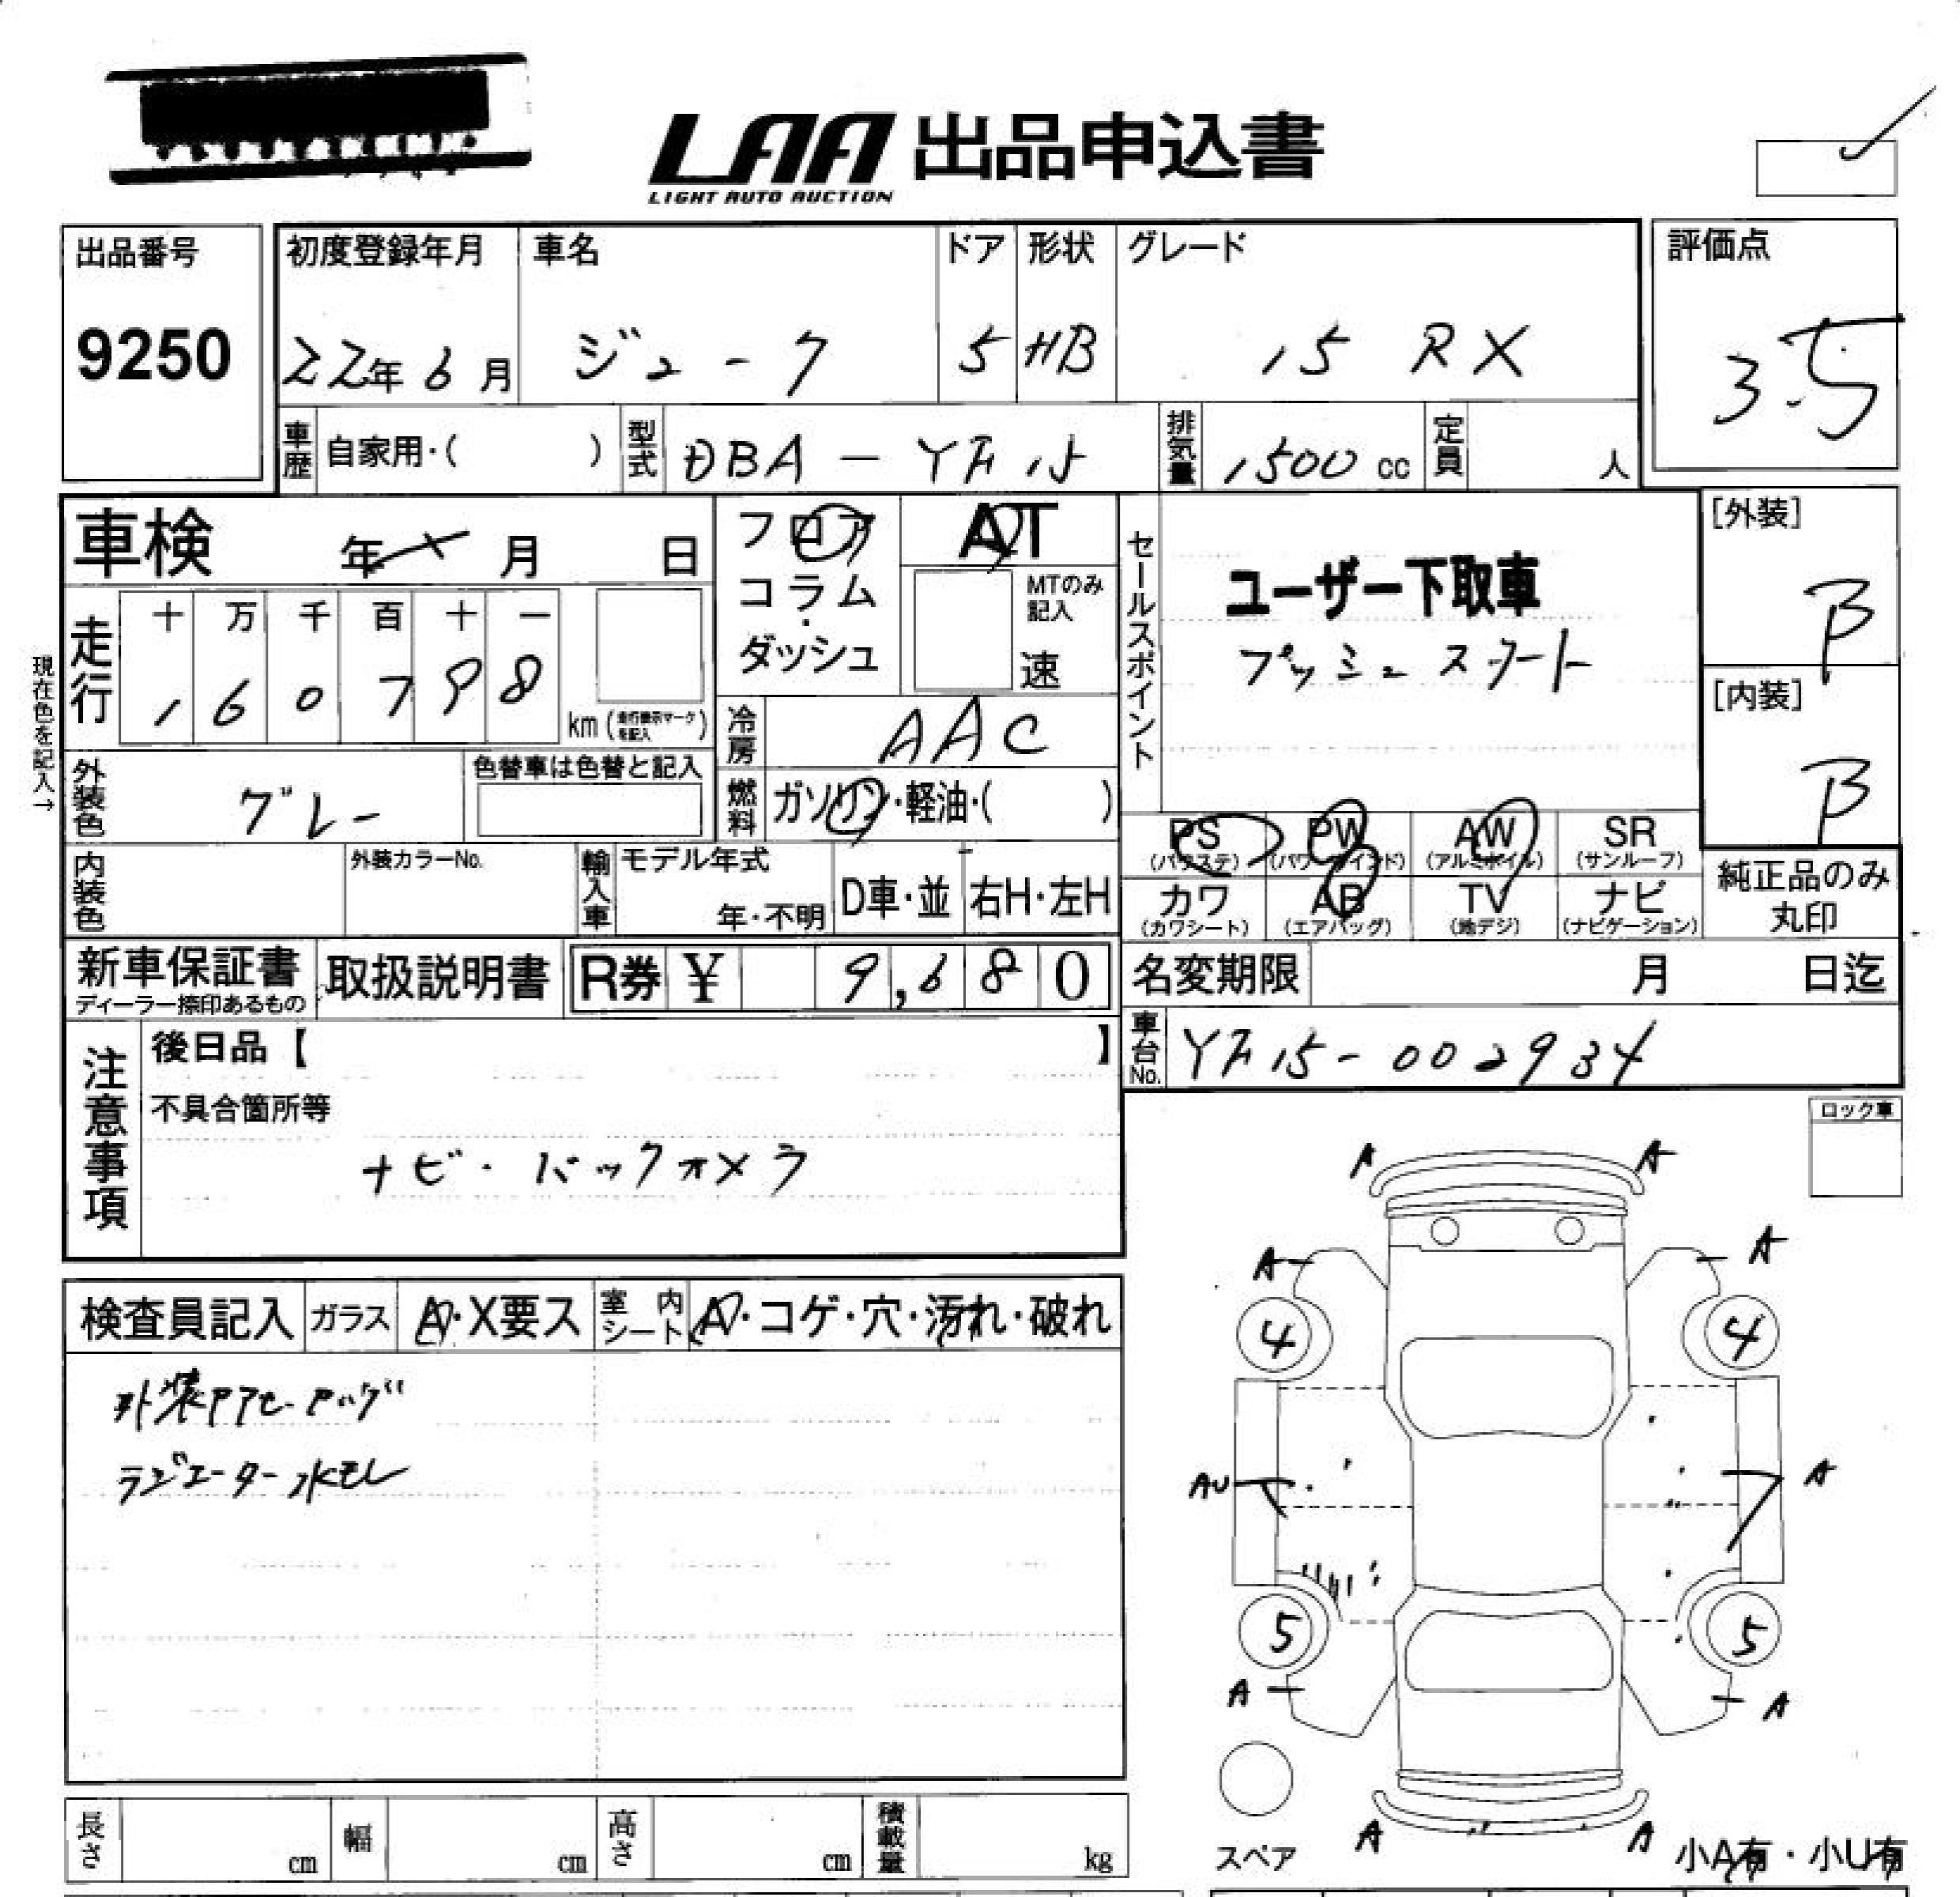 LAA 出品申込書
LIGHT AUTO AUCTION
出品番号
9250
初度登録年月
22年 6月
車名
ジューク
ドア
5
形状
HB
グレード
15 RX
評価点
3.5
車歴 自家用・( )
型式 DBA-YF15
排気量 1500 cc
定員 人
車検 年 月 日
走行 十 万 千 百 十 一
1 6 0 7 9 8 km (走行表示マークを記入)
現在色を記入→
フロア
コラム
・
ダッシュ
AT
MTのみ記入
速
冷房 AAC
燃料 ガソリン・軽油・( )
セールスポイント
ユーザー下取車
プッシュスタート
[外装]
B
[内装]
B
外装色 グレー
色替車は色替と記入
内装色
外装カラーNo.
輸入車
モデル年式
年・不明
D車・並
右H・左H
PS (パワステ)
PW (パワーウインド)
AW (アルミホイル)
SR (サンルーフ)
カワ (カワシート)
AB (エアバッグ)
TV (地デジ)
ナビ (ナビゲーション)
純正品のみ
丸印
新車保証書
ディーラー捺印あるもの
取扱説明書
R券 ¥ 9,680
名変期限 月 日迄
車台No. YF15-002934
注意事項
後日品【 】
不具合箇所等
ナビ・バックカメラ
ロック車
検査員記入
ガラス A・X要ス
室内シート A・コゲ・穴・汚れ・破れ
ラジエーター水モレ
A A
A A
4 4
AU A
5 5
A A
スペア
A A
小A有・小U有
長さ cm
幅 cm
高さ cm
積載量 kg